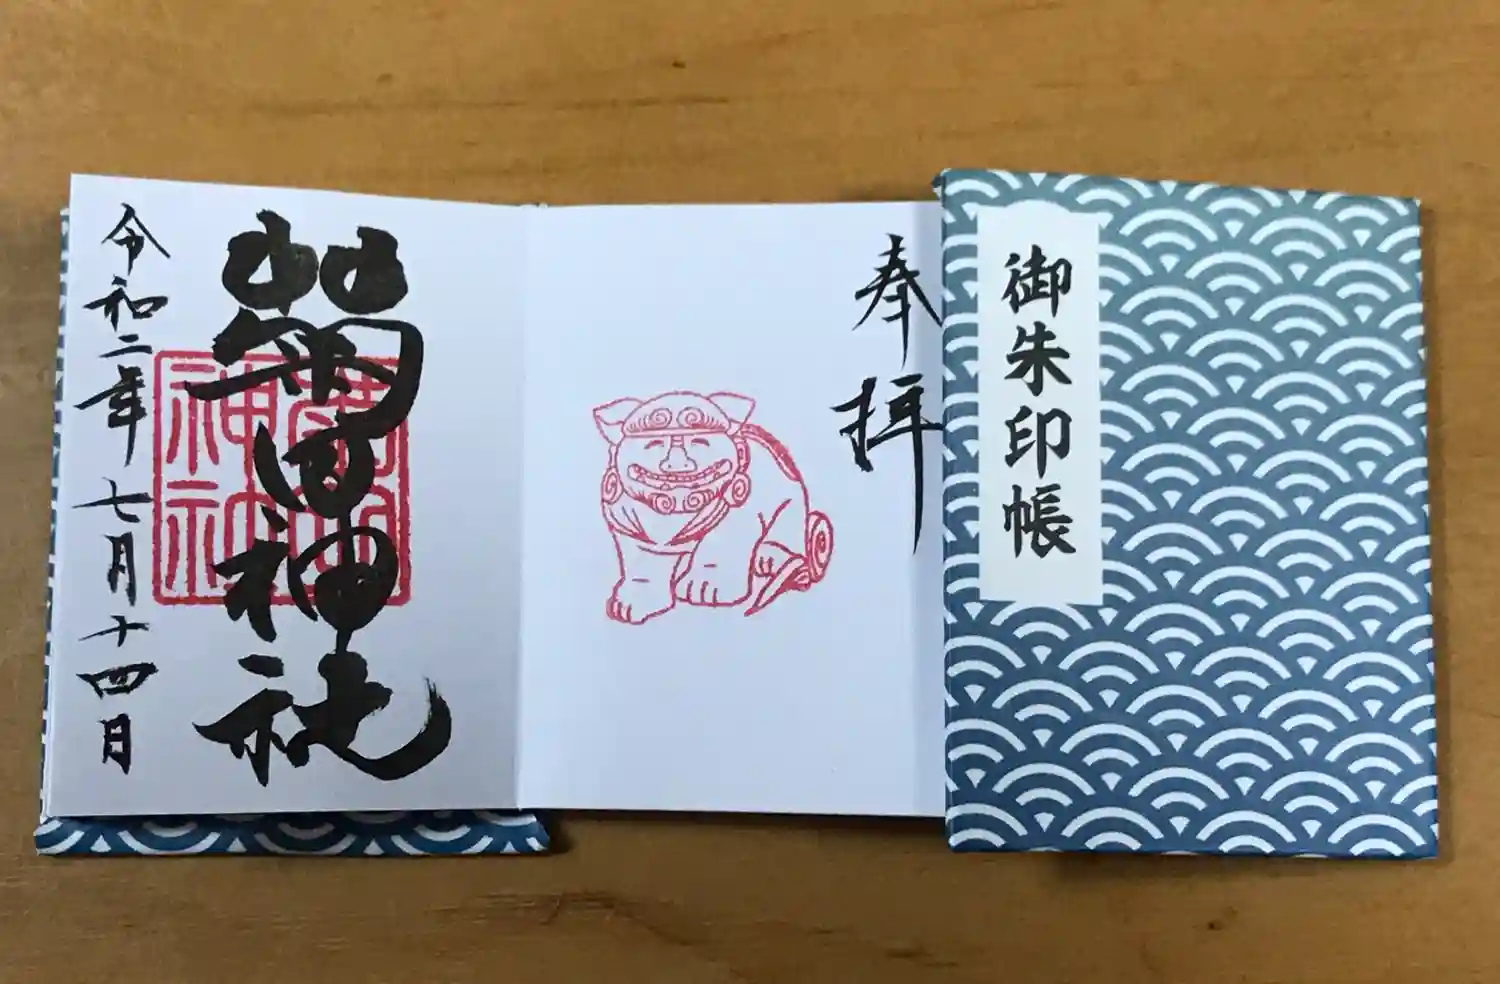 御朱印帳
奉拝
菊田神社
菊田
神社
令和二年七月十四日